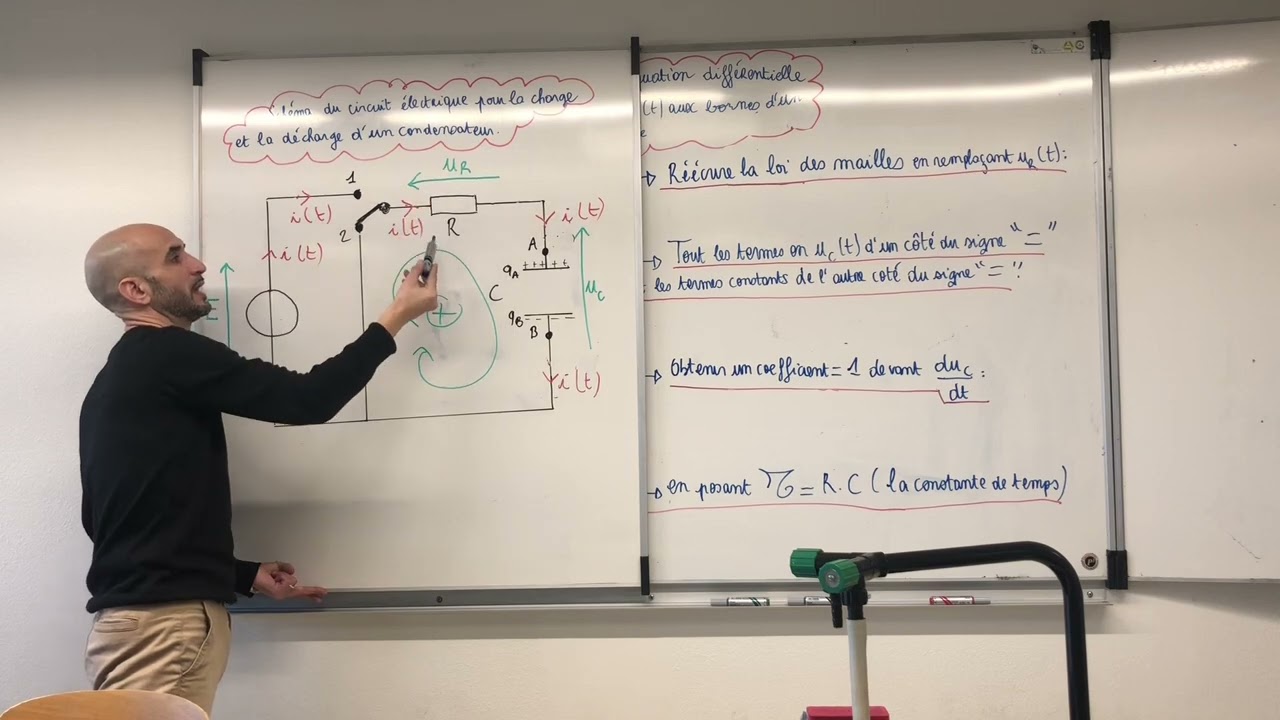 du circuit électrique pour la charge
et la décharge d'un condensateur.
uR
1
i(t)
2
i(t)
i(t)
R
i(t)
A
++++ +++
qA
C
uC
qB
B
i(t)
+
différentielle
(t) aux bornes d'un
Réécrire la loi des mailles en remplaçant uR(t):
Tout les termes en uC(t) d'un côté du signe "="
les termes constants de l'autre coté du signe "="?
Obtenir un coefficient = 1 devant duC/dt :
en posant τ = R.C (la constante de temps)